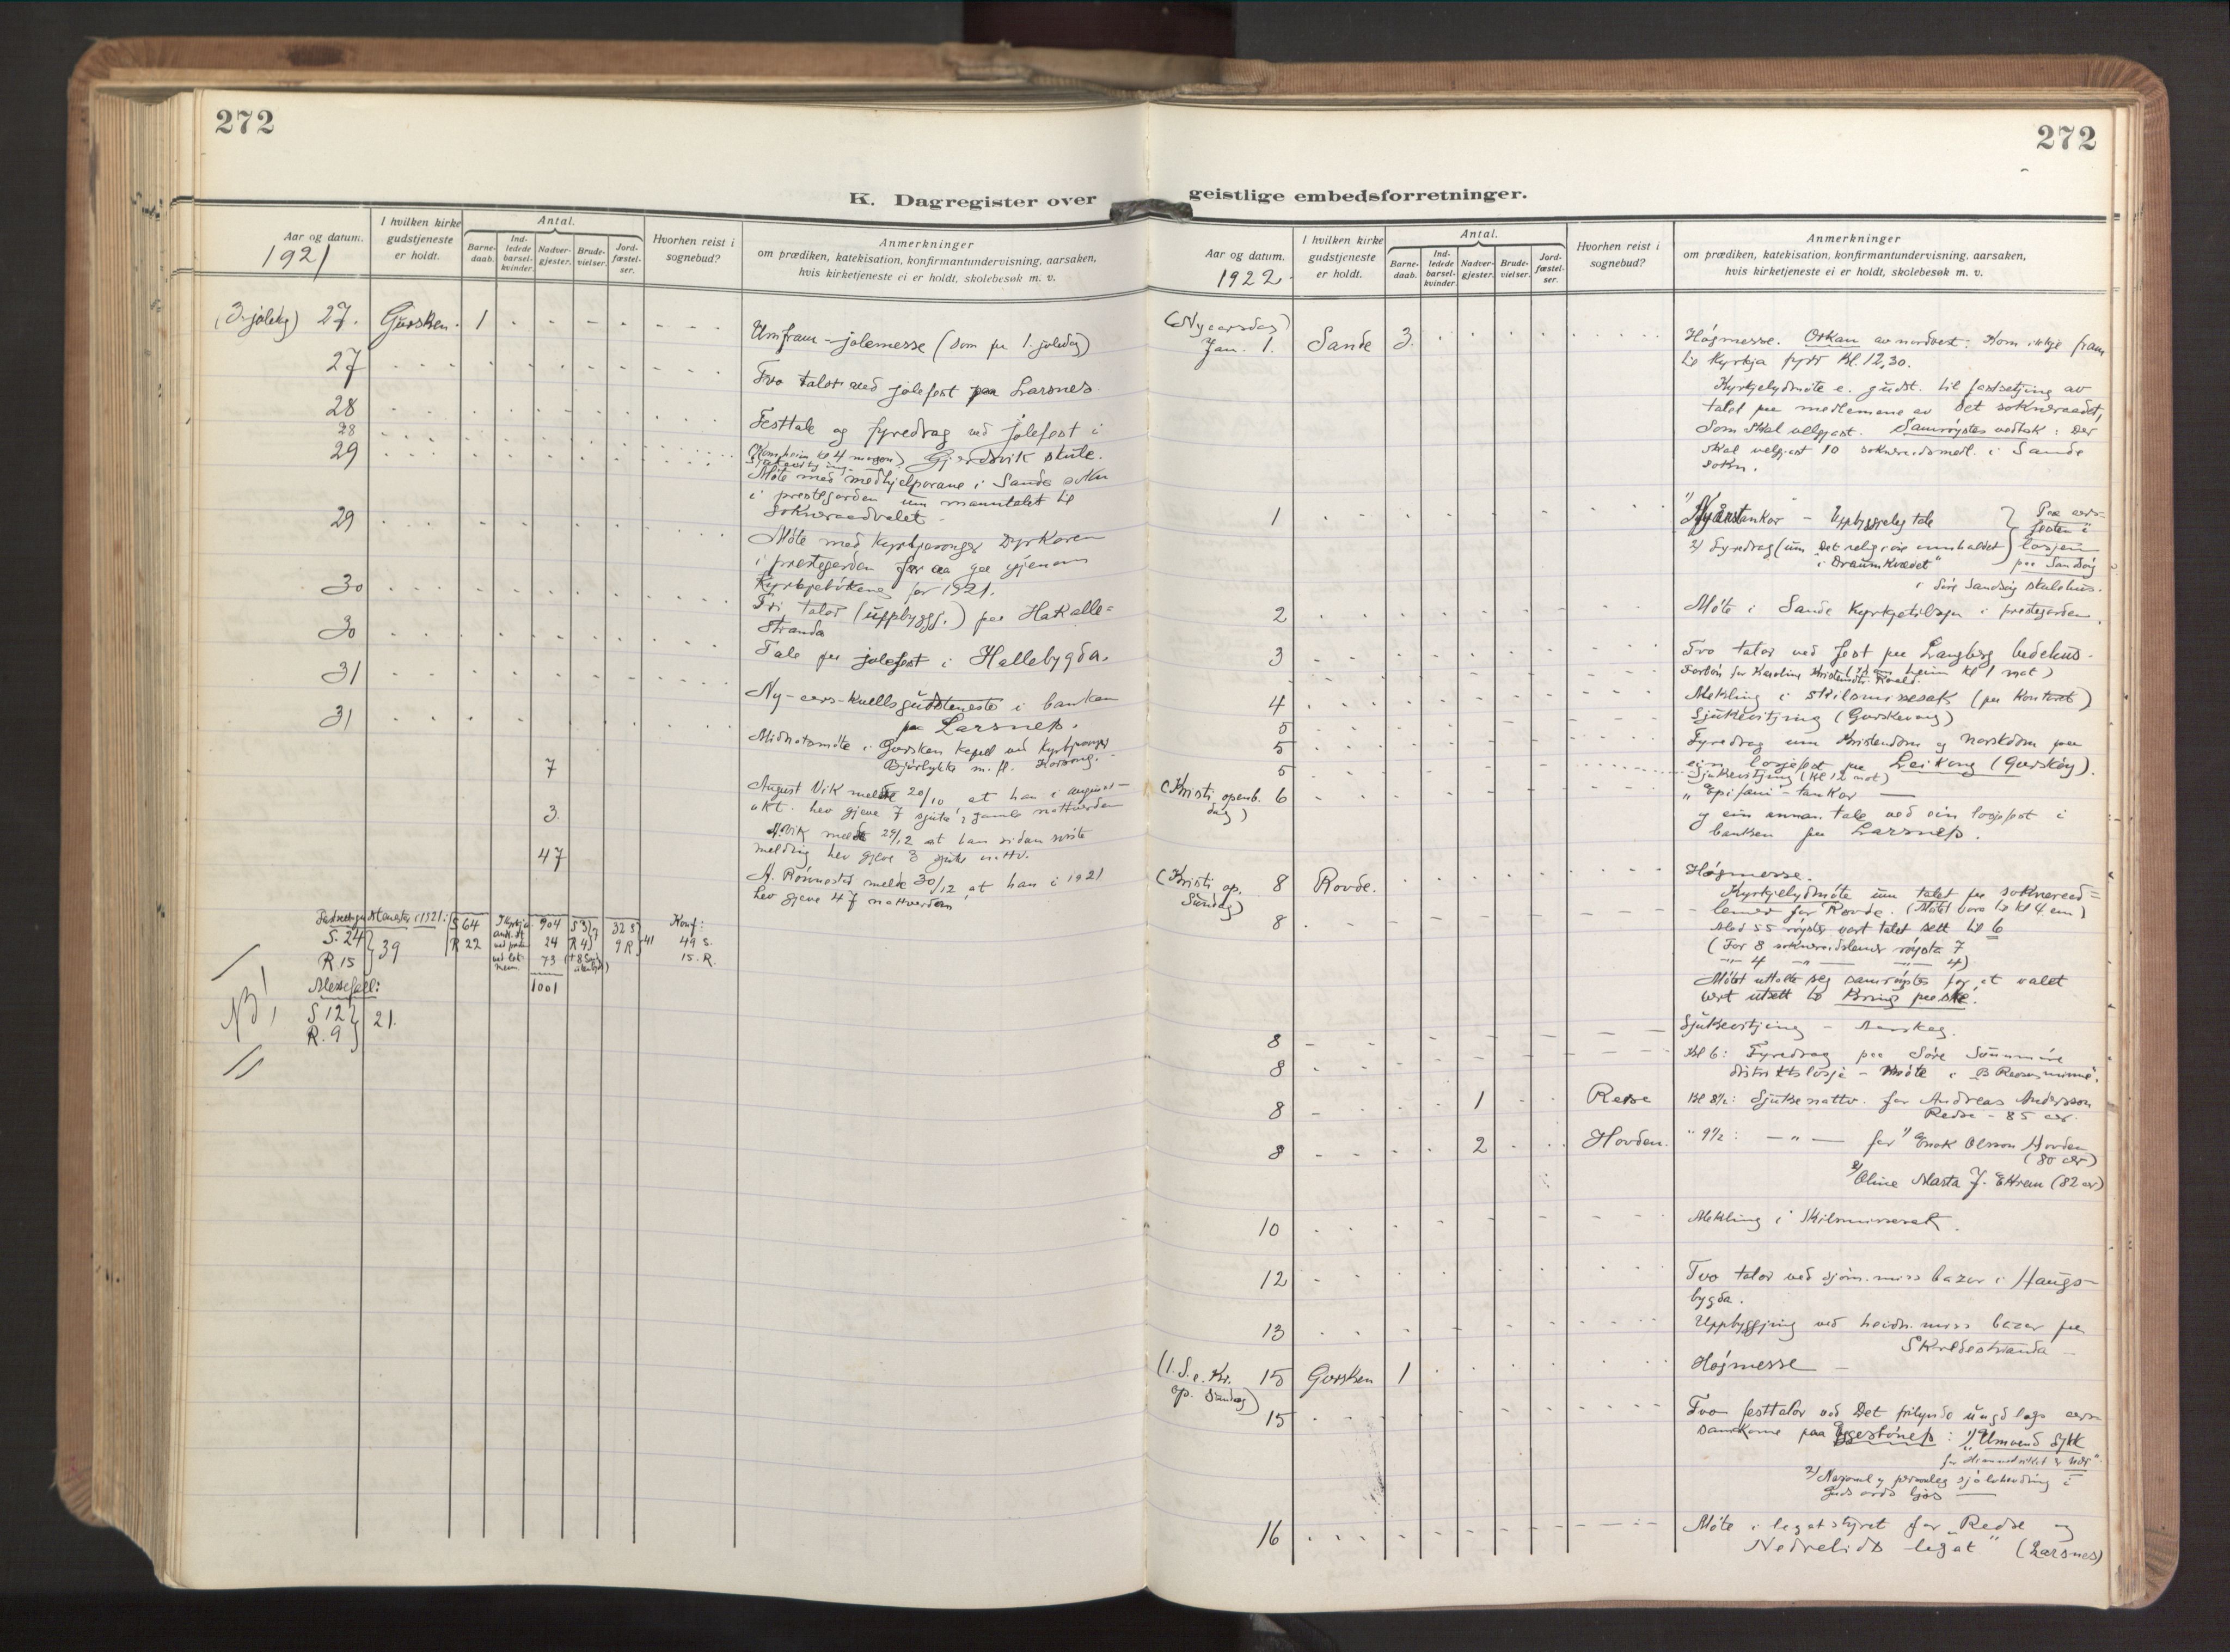 272
K. Dagregister over
Aar og datum.
1921
I hvilken kirke
gudstjeneste
er holdt.
Antal.
Barne-
daab.
Ind-
ledede
barsel-
kvinder.
Nadver-
gjester.
Brude-
vielser.
Jord-
fæstel-
ser.
Hvorhen reist i
sognebud?
Anmerkninger
om prædiken, katekisation, konfirmantundervisning, aarsaken,
hvis kirketjeneste ei er holdt, skolebesøk m. v.
(3. joledag) 27. Gursken. 1
Umfram-jolemesse (som fyr 1. joledag)
27
Tvo talor med jolefest paa Larsnes.
28
Festtale og fyredrag ved jolefest i
Gjerdsvik skule.
28
(Kom heim kl 4 morgon)
29
Møte med medhjelparane i Sande sokn
i prestegarden um manntalet til
sokneraadvalet
29
Møte med kyrkjesongar Dyrkoren
i prestegarden for aa gaa gjenom
kyrkjebøkene for 1921.
30
Tri talor (uppbyggj.) paa Hakalle=
stranda
30
Tale paa jolefest i Hallebygda.
31
Ny-aars-kvells gudsteneste i banken
paa Larsnes.
31
Midnatsmøte i Gursken kapell ved kyrkjesongar
Bjørlykke m. fl.
7
August Vik melde 20/10 at han i august-
okt. hev gjeve 7 sjuke, gamle nattverden
3
A. Vik melde 29/12 at han sidan siste
melding hev gjeve 3 sjuke nattv.
47
A. Rønnestad melde 30/12 at han i 1921
hev gjeve 47 nattverden
1921:
S. 24
R 15
39
S 64
R 22
904
24
73
1001
S 3
R 4
7
32 S
9 R
41
Konf:
49 S.
15. R.
NB!
Messefall:
S 12
R. 9
21.
272
geistlige embedsforretninger.
Aar og datum.
1922
I hvilken kirke
gudstjeneste
er holdt.
Antal.
Barne-
daab.
Ind-
ledede
barsel-
kvinder.
Nadver-
gjester.
Brude-
vielser.
Jord-
fæstel-
ser.
Hvorhen reist i
sognebud?
Anmerkninger
om prædiken, katekisation, konfirmantundervisning, aarsaken,
hvis kirketjeneste ei er holdt, skolebesøk m. v.
(Nyaarsdag)
Jan. 1. Sande 3.
Høgmesse. Orkan av nordvest. Kom ikkje fram
til kyrkja fyrr kl. 12,30.
Kyrkjelydmøte e. gudst. til fastsetjing av
talet paa medlemene av det sokneraadet,
som skal veljast. Samrøystes vedtak: Der
skal veljast 10 sokneraadsmedl. i Sande
sokn.
1
1) Nyårstankar - Uppbyggjeleg tale
2) Fyredrag (um "Det religiøse innhaldet
i Draumkvædet"
Paa aars-
festen i
losjen
paa Sandsøy
i Søre Sandsøy skulehus.
2
Møte i Sande kyrkjetilsyn i prestegarden.
3
Tvo talor ved fest paa Langberg bedehus.
4
Mekling i skilsmissesak (paa kontoret)
5
Sjukevitjing (Gurskevaag)
5
Fyredrag um kristendom og norskdom paa
ein losjefest paa Leikong (Gurskøy).
5
Sjukevitjing (kl 12 nat)
(Kristi openb.
dag) 6
"Epifani"-tankar
og ein annan tale ved ein losjefest i
banken paa Larsnes.
(Kristi op.
Sundag) 8 Rovde.
Høgmesse.
8
Kyrkjelydmøte um talet paa soknераad=
lemer for Rovde. (Møtet vara til kl 4 em)
Med 55 røyster vart talet sett til 6
(For 8 soknераadslemer røysta 7
" 4 " — " 4)
Møtet uttalte seg samrøystes for at valet
vert utsett til kring paaske.
8
Sjukevitjing - Aarskog.
8
Kl 6: Fyredrag paa Søre Sunnmøre
distriktslosje-møte i
8 1 Redse
Kl 8½: Sjukenattv. for Andreas Andersson
Redse - 85 aar.
8 2 Hovden.
" 9½: — " — for 1) Enok Olsson Hovden
(80 aar)
2) Oline Marta J. Ekrem (82 aar)
10
Mekling i skilsmissesak.
12
Tvo talor ved sjøm. miss bazar i Haugs-
bygda.
13
Uppbyggjing ved heidn. miss bazar paa
Skredestranda
(1. S. e. Kr.
op. Sundag) 15 Gursken 1
Høgmesse
15
Tvo festtalor ved Det frilynde ungd. lags aars-
samkome paa Eggesbønes: 1) "Umvend dykk
for Himmelriket er nær"
2) Nasjonal og personleg sjølvhevding i
Guds ords ljos
16
Møte i legatstyret for "Redse og
Nedrelids legat" (Larsnes)